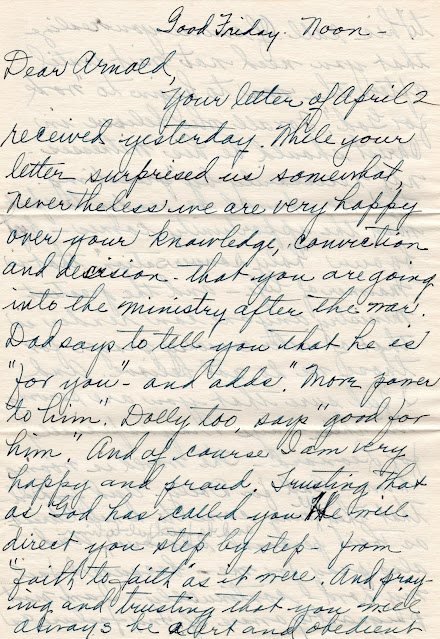 Good Friday. Noon -
Dear Arnold,
Your letter of April 2
received yesterday. While your
letter surprised us somewhat,
nevertheless we are very happy
over your knowledge, conviction
and decision - that you are going
into the ministry after the war.
Dad says to tell you that he is
"for you" - and adds "More power
to him". Dolly too, says "good for
him." And of course I am very
happy and proud. Trusting that
as God has called you He will
direct you step by step - from
"faith to faith" as it were. And pray-
ing and trusting that you will
always be alert and obedient